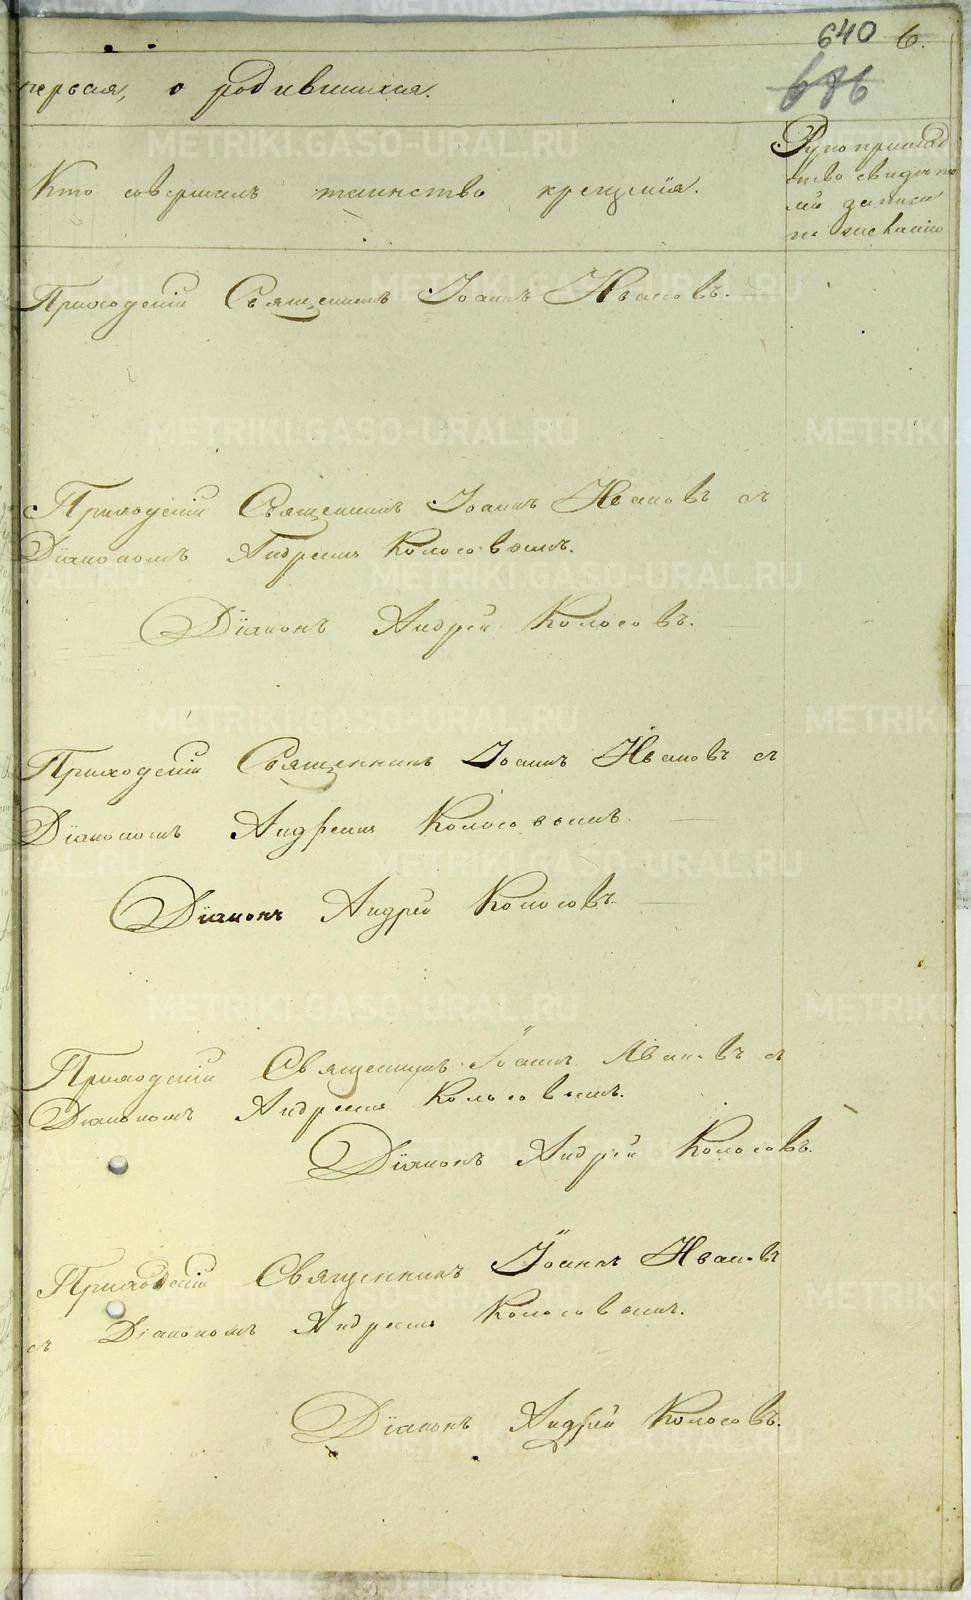 640 6.
686
первая, о родившихся.
Кто совершалъ таинство крещенія.
Рукоприклад
ство свидѣте
лей записи
по желанію
Приходскій Священникъ Іоаннъ Ивановъ.
Приходскій Священникъ Іоаннъ Ивановъ съ
Діакономъ Андреемъ Колосовымъ.
Діаконъ Андрей Колосовъ.
Приходскій Священникъ Іоаннъ Ивановъ съ
Діакономъ Андреемъ Колосовымъ.
Діаконъ Андрей Колосовъ.
Приходскій Священникъ Іоаннъ Ивановъ съ
Діакономъ Андреемъ Колосовымъ.
Діаконъ Андрей Колосовъ.
Приходскій Священникъ Іоаннъ Ивановъ
съ Діакономъ Андреемъ Колосовымъ.
Діаконъ Андрей Колосовъ.
METRIKI.GASO-URAL.RU